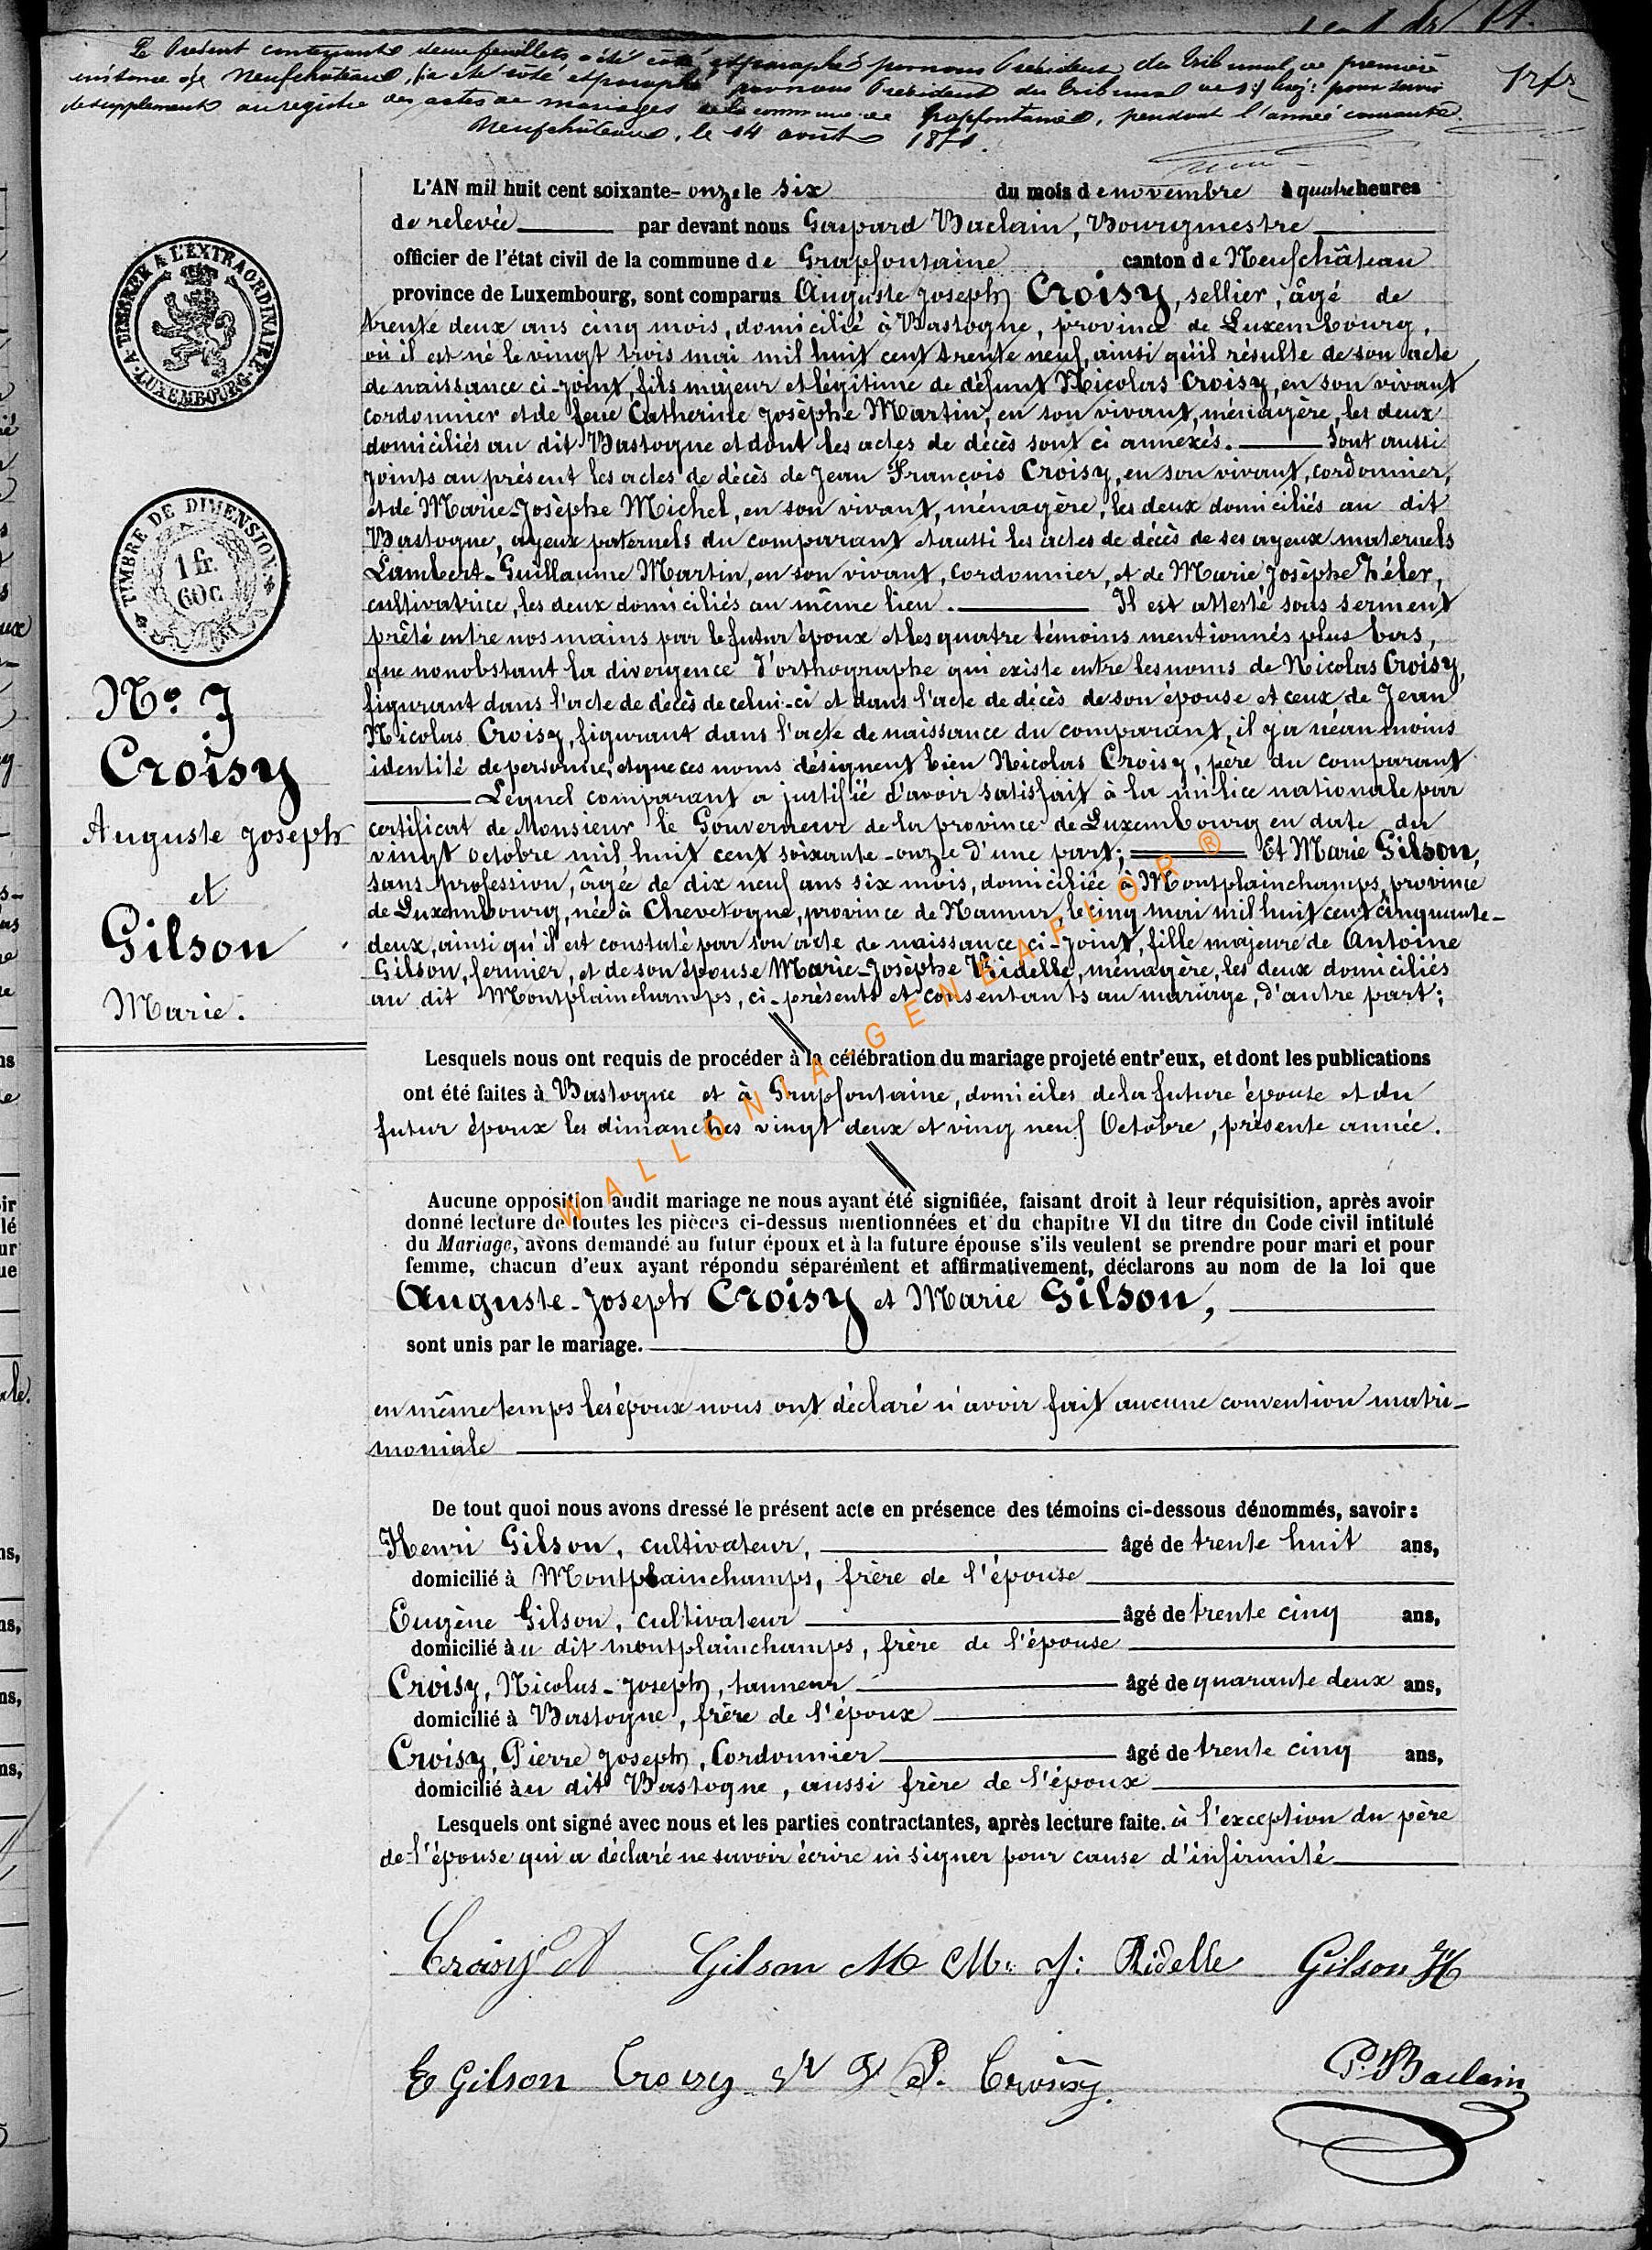 Le Présent contenant deux feuillets, a été coté et paraphé par nous Président du Tribunal de première
instance de Neufchâteau, a été coté et paraphé par nous Président du Tribunal pour servir
de supplément au registre des actes de mariages de la commune de Grapfontaine, pendant l'année courante.
Neufchâteau, le 14 août 1871.
TIMBRE A L'EXTRAORDINAIRE
LUXEMBOURG
TIMBRE DE DIMENSION
1 fr.
60 c.
N° 7
Croisy
Auguste Joseph
et
Gilson
Marie.
L'AN mil huit cent soixante-onze le six du mois de novembre à quatre heures
de relevée par devant nous Gaspard Baclain, Bourgmestre
officier de l'état civil de la commune de Grapfontaine canton de Neufchâteau
province de Luxembourg, sont comparus Auguste Joseph Croisy, sellier, âgé de
trente deux ans cinq mois, domicilié à Bastogne, province de Luxembourg,
où il est né le vingt trois mai mil huit cent trente neuf, ainsi qu'il résulte de son acte
de naissance ci-joint, fils majeur et légitime de défunt Nicolas Croisy, en son vivant
cordonnier et de feue Catherine Josèphe Martin, en son vivant, ménagère, les deux
domiciliés au dit Bastogne et dont les actes de décès sont ci annexés. Sont aussi
joints au présent les actes de décès de Jean François Croisy, en son vivant, cordonnier,
et de Marie-Josèphe Michel, en son vivant, ménagère, les deux domiciliés au dit
Bastogne, ayeux paternels du comparant et aussi les actes de décès de ses ayeux maternels
Lambert-Guillaume Martin, en son vivant, cordonnier, et de Marie Josèphe Zéler,
cultivatrice, les deux domiciliés au même lieu. Il est attesté sous serment
prêté entre nos mains par le futur époux et les quatre témoins mentionnés plus bas,
que nonobstant la divergence d'orthographe qui existe entre les noms de Nicolas Croisy,
figurant dans l'acte de décès de celui-ci et dans l'acte de décès de son épouse et ceux de Jean
Nicolas Croisy, figurant dans l'acte de naissance du comparant, il y a néanmoins
identité de personne, et que ces noms désignent bien Nicolas Croisy, père du comparant
Lequel comparant a justifié d'avoir satisfait à la milice nationale par
certificat de Monsieur le Gouverneur de la province de Luxembourg en date du
vingt octobre mil huit cent soixante-onze d'une part; Et Marie Gilson,
sans profession, âgée de dix neuf ans six mois, domiciliée à Montplainchamps, province
de Luxembourg, née à Chevetogne, province de Namur, le cinq mai mil huit cent cinquante-
deux, ainsi qu'il est constaté par son acte de naissance ci-joint, fille majeure de Antoine
Gilson, fermier, et de son épouse Marie-Josèphe Ridelle, ménagère, les deux domiciliés
au dit Montplainchamps, ci-présents et consentants au mariage, d'autre part;
Lesquels nous ont requis de procéder à la célébration du mariage projeté entr'eux, et dont les publications
ont été faites à Bastogne et à Grapfontaine, domiciles de la future épouse et du
futur époux les dimanches vingt deux et ving neuf Octobre, présente année.
WALLONIA-GENEAFLOR ®
Aucune opposition audit mariage ne nous ayant été signifiée, faisant droit à leur réquisition, après avoir
donné lecture de toutes les pièces ci-dessus mentionnées et du chapitre VI du titre du Code civil intitulé
du Mariage, avons demandé au futur époux et à la future épouse s'ils veulent se prendre pour mari et pour
femme, chacun d'eux ayant répondu séparément et affirmativement, déclarons au nom de la loi que
Auguste-Joseph Croisy et Marie Gilson,
sont unis par le mariage.
en même temps les époux nous ont déclaré n'avoir fait aucune convention matri-
moniale
De tout quoi nous avons dressé le présent acte en présence des témoins ci-dessous dénommés, savoir :
Henri Gilson, cultivateur, âgé de trente huit ans,
domicilié à Montplainchamps, frère de l'épouse
Eugène Gilson, cultivateur âgé de trente cinq ans,
domicilié au dit montplainchamps, frère de l'épouse
Croisy, Nicolas-Joseph, tanneur âgé de quarante deux ans,
domicilié à Bastogne, frère de l'époux
Croisy, Pierre Joseph, Cordonnier âgé de trente cinq ans,
domicilié au dit Bastogne, aussi frère de l'époux
Lesquels ont signé avec nous et les parties contractantes, après lecture faite. à l'exception du père
de l'épouse qui a déclaré ne savoir écrire ni signer pour cause d'infirmité
Croisy A Gilson M M. J: Ridelle Gilson H
E Gilson Croisy N J P. Croisy. G. Baclain